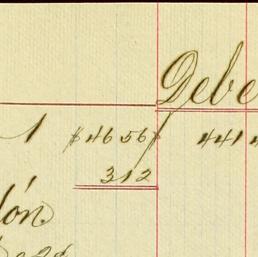 Debe
1 $4656 441
312
dón